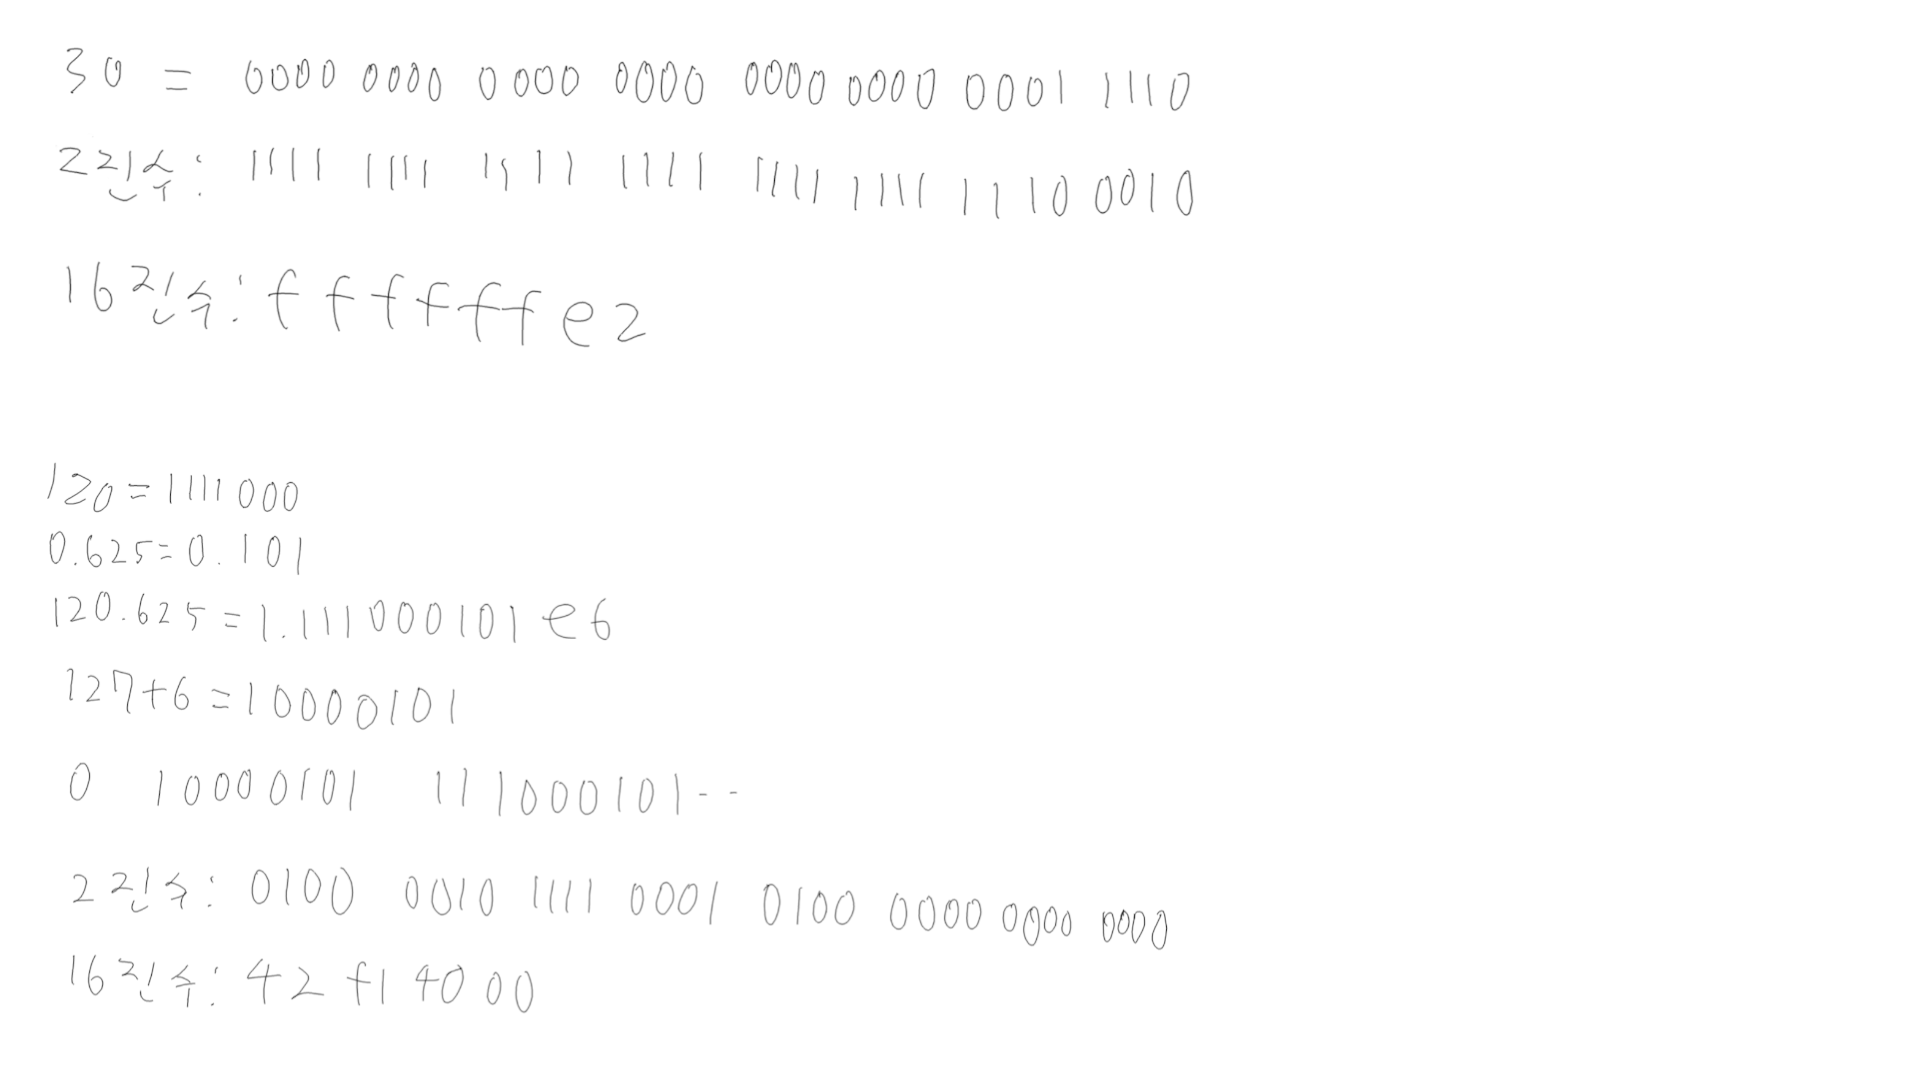 30 = 0000 0000 0000 0000 0000 0000 0001 1110
2진수: 1111 1111 1111 1111 1111 1111 1110 0010
16진수: ffffffe2
120=1111000
0.625=0.101
120.625=1.111000101 e6
127+6=10000101
0 10000101 111000101--
2진수: 0100 0010 1111 0001 0100 0000 0000 0000
16진수: 42 f1 40 00